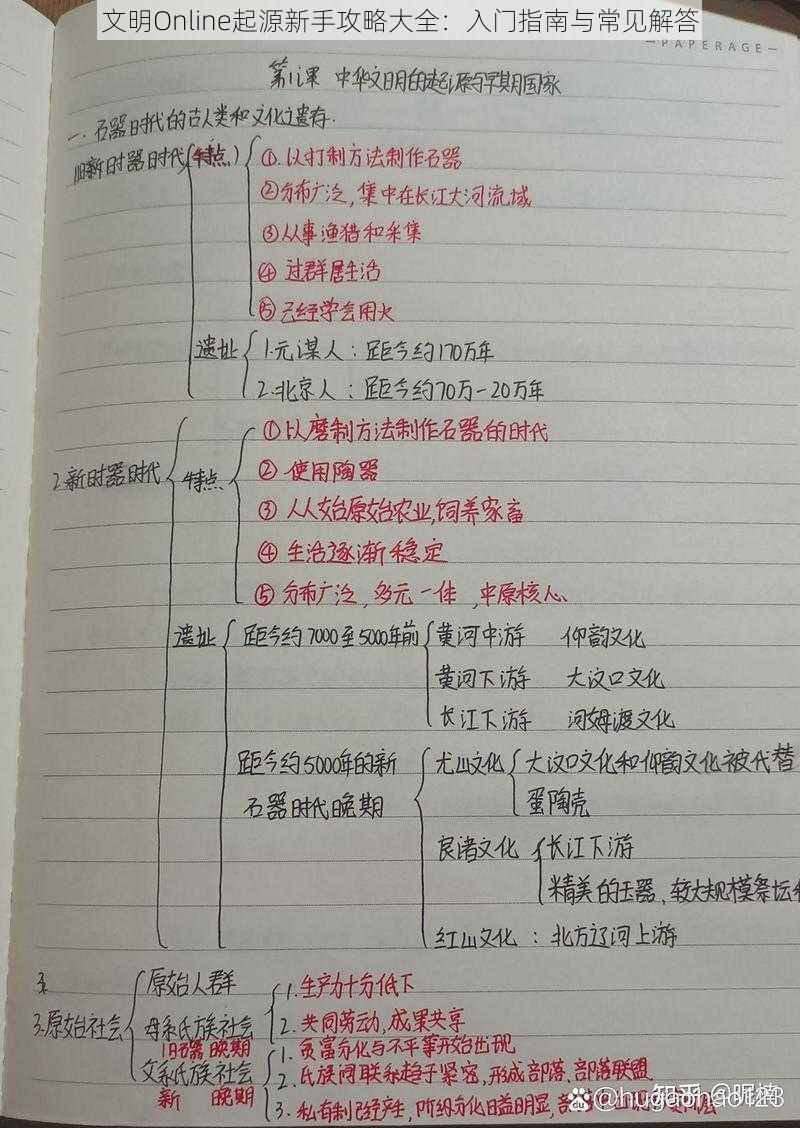 文明Online起源新手攻略大全：入门指南与常见解答
PAPERAGE
第1课 中华文明的起源与早期国家
一.石器时代的古人类和文化遗存.
旧新时器时代(特点.) ①.以打制方法制作石器
②分布广泛,集中在长江大河流域
③从事渔猎和采集
④ 过群居生活
⑤ 已经学会用火
遗址 1.元谋人：距今约170万年
2.北京人：距今约70万-20万年
2.新时器时代 特点 ①以磨制方法制作石器的时代
② 使用陶器
③ 人从始原始农业,饲养家畜
④ 生活逐渐稳定
⑤ 分布广泛,多元一体,中原核心
遗址 距今约7000至5000年前 黄河中游 仰韵文化
黄河下游 大汶口文化
长江下游 河姆渡文化
距今约5000年的新
石器时代晚期
尤山文化 大汶口文化和仰韵文化被代替
蛋陶壳
良诸文化 长江下游
精美的玉器、较大规模祭坛
红山文化：北方辽河上游
3.原始社会 原始人群
母系氏族社会
旧石器晚期
父系氏族社会
新 晚期
1.生产力十分低下
2.共同劳动,成果共享
1.贫富分化与不平等开始出现
2.氏族间联系趋于紧密,形成部落、部落联盟.
3.私有制已经产生,阶级分化日益明显,
知乎 @昵楠
@hugaohao123